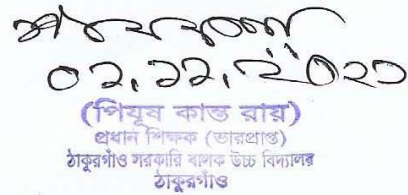 ০২.১২.২০২১
(পিযূষ কান্ত রায়)
প্রধান শিক্ষক (ভারপ্রাপ্ত)
ঠাকুরগাঁও সরকারি বালক উচ্চ বিদ্যালয়
ঠাকুরগাঁও